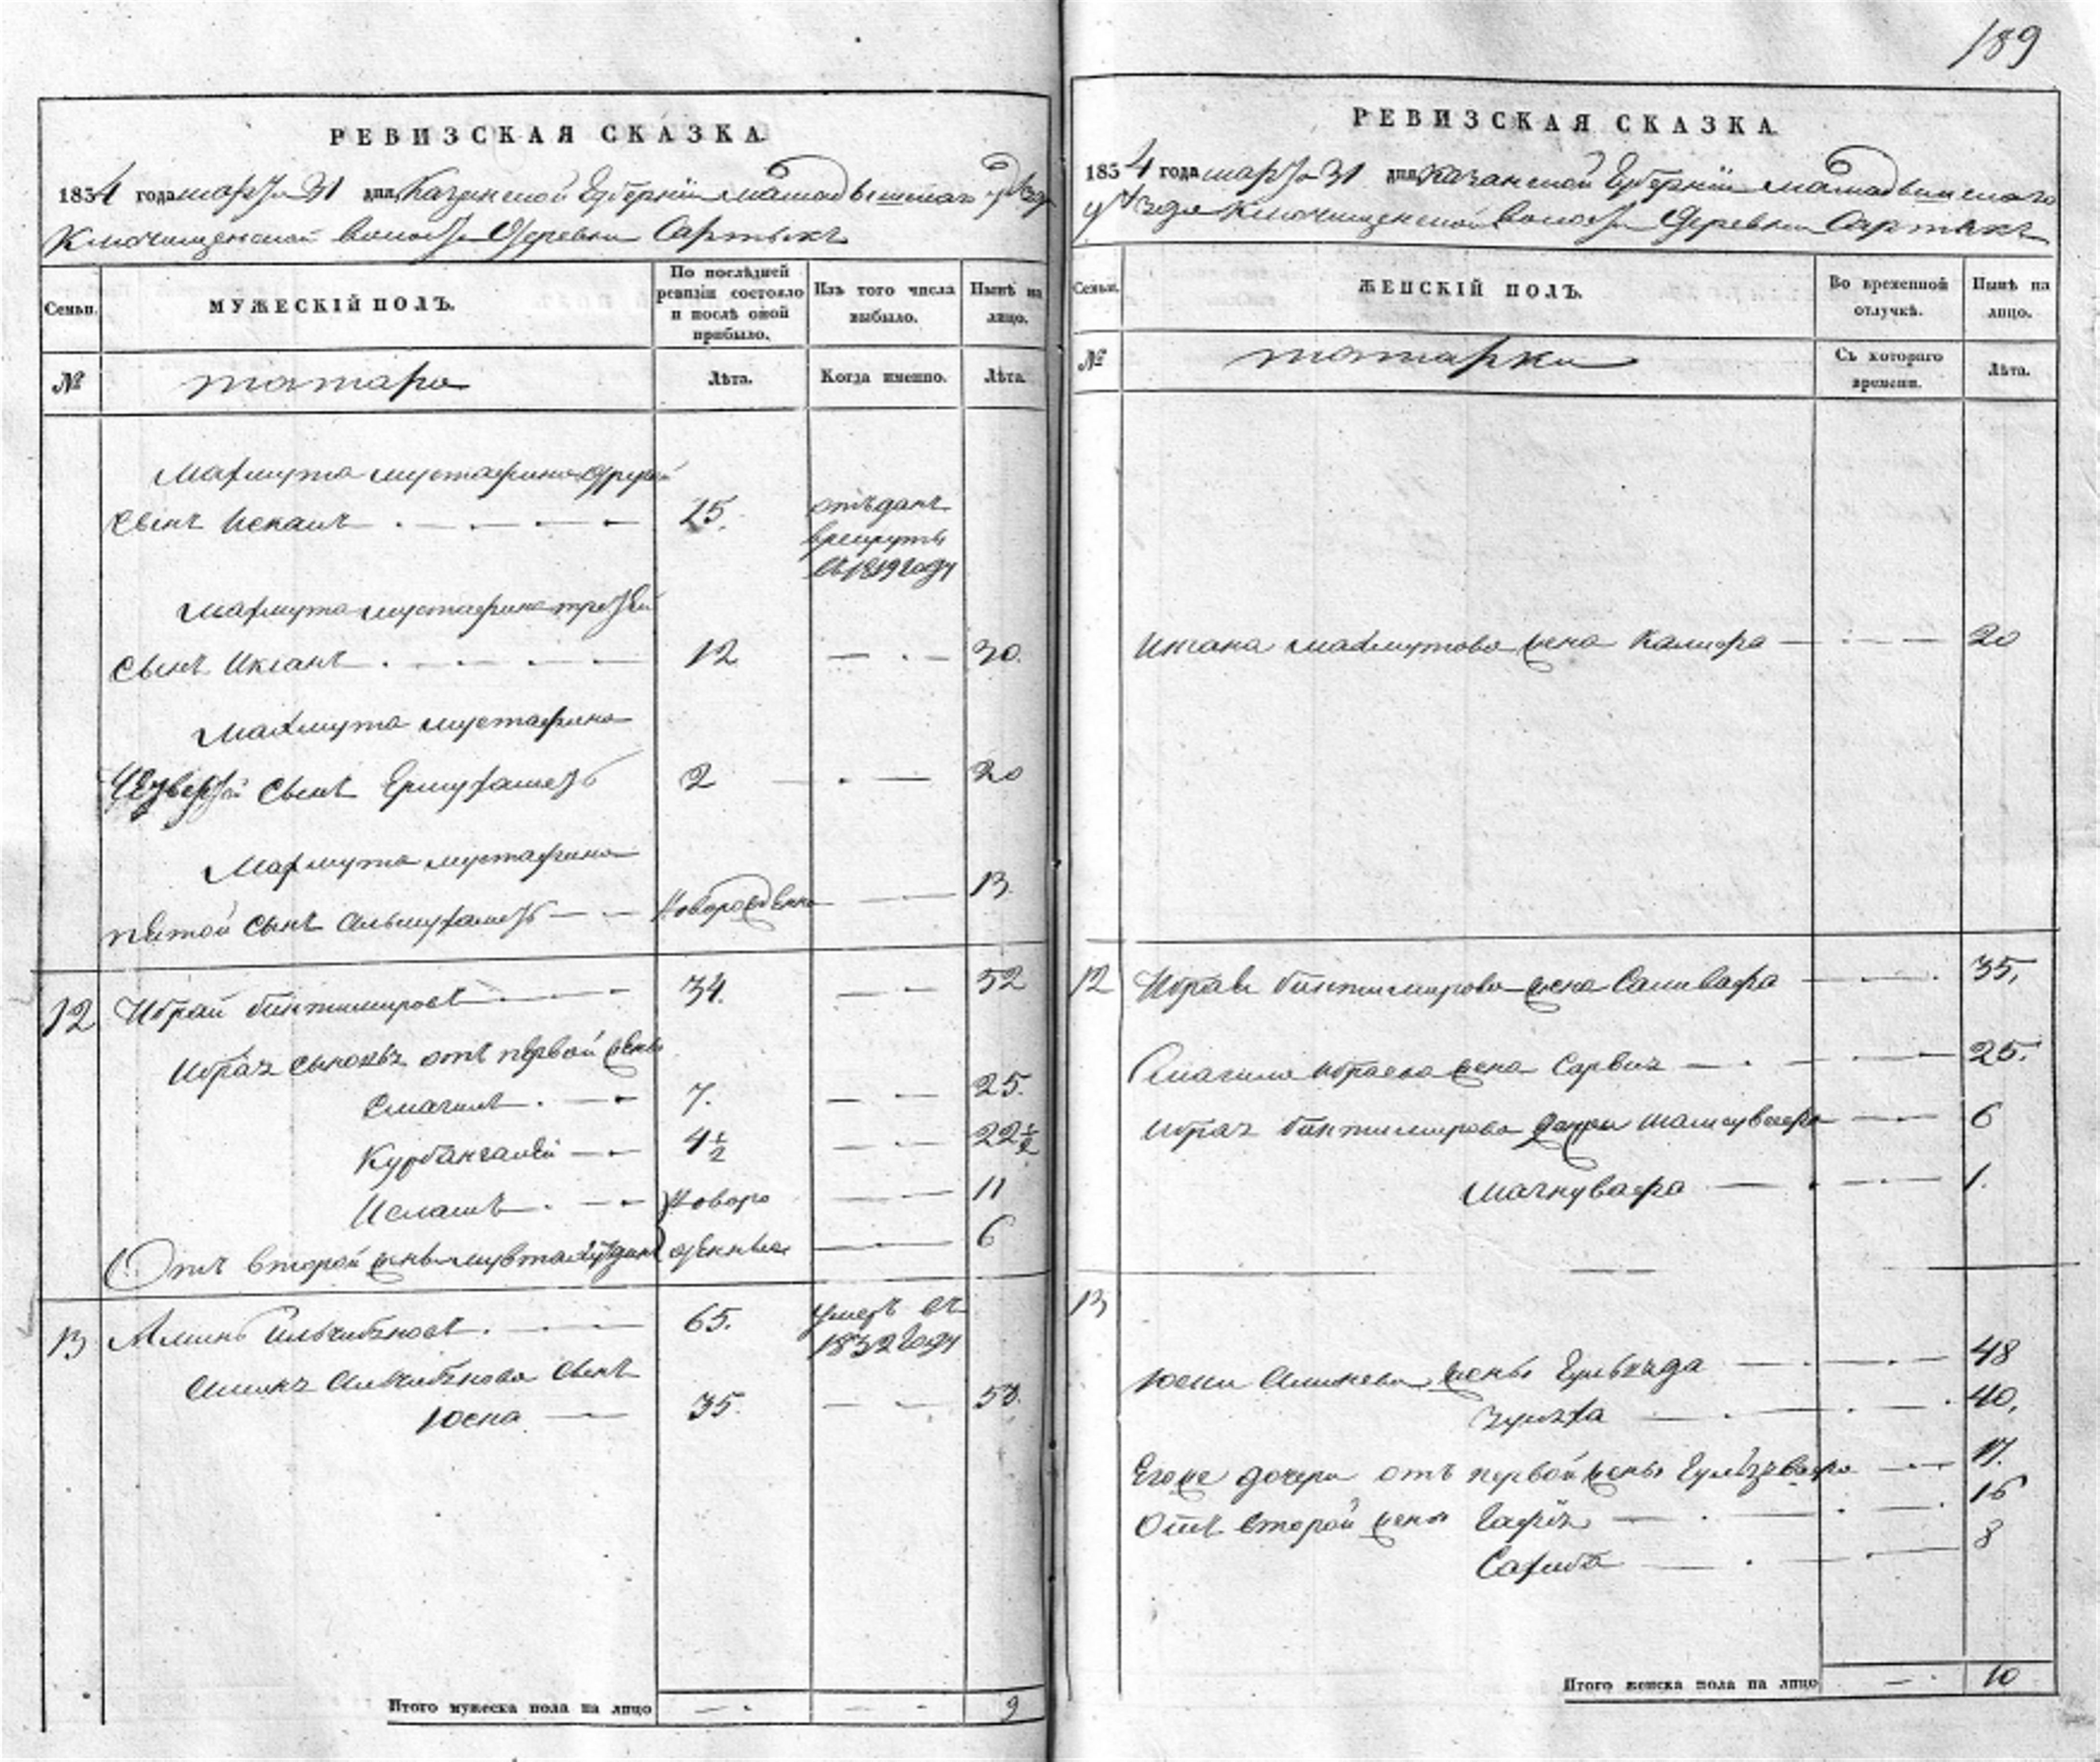 189
РЕВИЗСКАЯ СКАЗКА.
1834 года марта 31 дня, Казанской Губерніи Мамадышскаго уѣзда
Ключищенской волости Деревни Сартыкъ
Семьи.
МУЖЕСКІЙ ПОЛЪ.
По послѣдней ревизіи состояло и послѣ оной прибыло.
Изъ того числа выбыло.
Нынѣ на лицо.
№
татара
Лѣта.
Когда именно.
Лѣта.
Махмута Мустафина другой
сынъ 25. отъданъ
врекруты
въ 1819 году
Махмута Мустафина третей
сынъ Иксанъ 12 30.
Махмута Мустафина
Четвертой сынъ 2 20
Махмута Мустафина
пятой сынъ новорожденной 13.
12 Ибрай Биктимировъ 34. 52
Ибрая сыновья отъ первой жены
Смагилъ 7. 25.
Курбангалей 4½ 22½
Исламъ новоро 11
Отъ второй жены жденныя 6
13 65. Умеръ въ
1832 году
сынъ
Юсна 35. 53.
Итого мужеска пола на лицо 9
РЕВИЗСКАЯ СКАЗКА.
1834 года марта 31 дня, Казанской Губерніи Мамадышскаго
уѣзда Ключищенской волости Деревни Сартыкъ
Семьи.
ЖЕНСКІЙ ПОЛЪ.
Во временной отлучкѣ.
Нынѣ на лицо.
№
татарки
Съ котораго времени.
Лѣта.
Иксана Махмутова жена 20
12 Ибрая Биктимирова жена 35.
Смагила Ибраева жена 25.
Ибрая Биктимирова дочери 6
Магнувафа 1.
13
Юсни Аминева жены 48
40.
Егоже дочери отъ первой жены 17.
Отъ второй жены 16
Сахиба 8
Итого женска пола на лицо 10